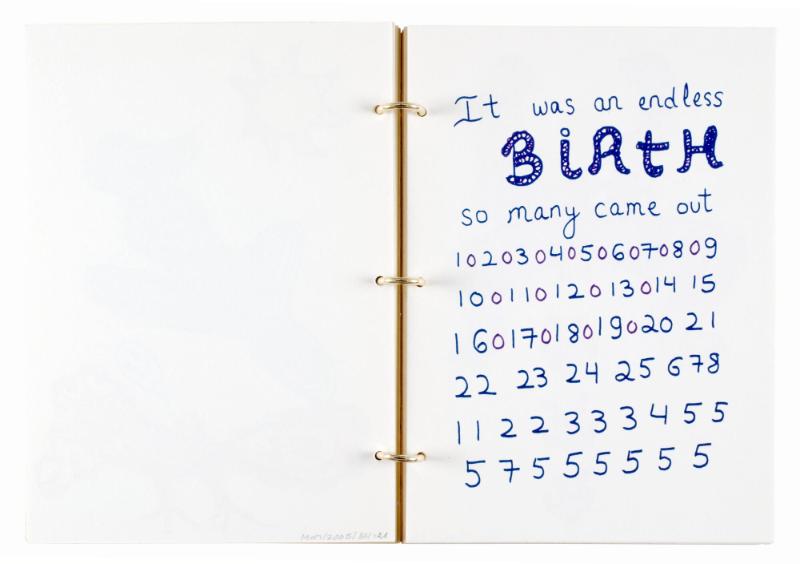 It was an endless
BiRtH
so many came out
10203040506070809
10 0 11 0 12 0 13 0 14 15
16 0 17 0 18 0 19 0 20 21
22 23 24 25 6 7 8
11 2 2 3 3 3 4 5 5
5 7 5 5 5 5 5 5